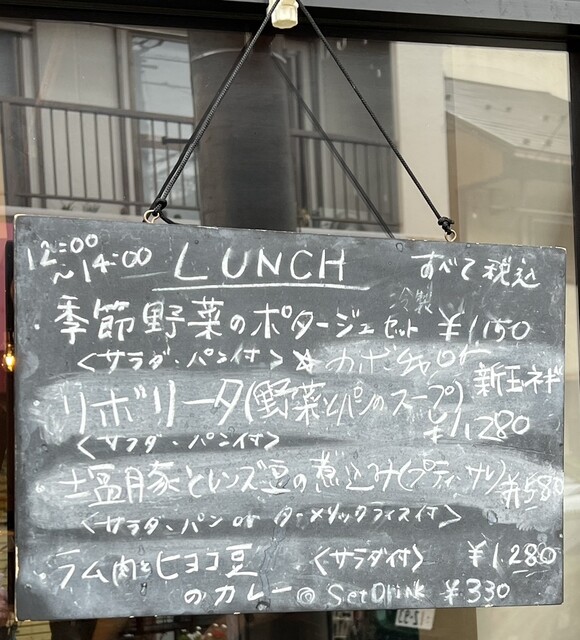 12:00
~14:00 LUNCH すべて税込
冷製
・季節野菜のポタージュセット ¥1,150
<サラダ・パン付> ☆ カボチャor
新玉ネギ
・リボリータ(野菜とパンのスープ)
<サラダ・パン付> ¥1,280
・塩豚とレンズ豆の煮込み(プティサレ) ¥1,580
<サラダ・パン or ターメリックライス付>
・ラム肉とヒヨコ豆 <サラダ付> ¥1,280
のカレー ◎ Set Drink ¥330